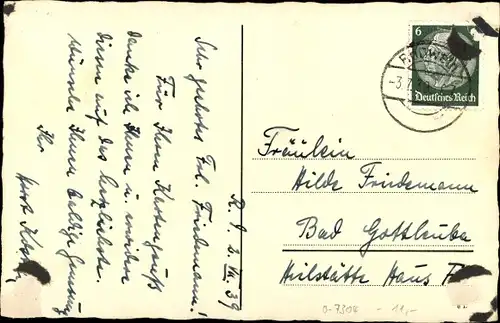 R., d. 2. VII. 39
Sehr geehrtes Frl. Friedemann!
Für Ihren Kartengruß
danke ich Ihnen u. erwidere
diesen auf das herzlichste.
wünsche Ihnen baldige Genesung
Ihr
Kurt
6
Deutsches Reich
-3.7.
Fräulein
Hilde Friedemann
Bad Gottleuba
Heilstätte Haus
0-7304 - 11,-